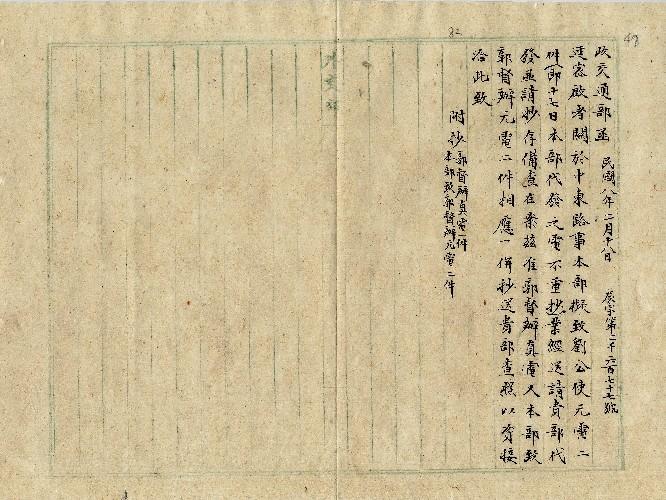 82
48
政交通部函 民國八年二月十八日 展字第二千六百七十七號
逕密啟者關於中東路事本部擬致劉公使元電二
件(即十七日本部代發之電不重抄)業經送請貴部代
發並請抄存備查在案茲准郭督辦真電又本部致
郭督辦元電二件相應一併抄送貴部查照以資接
洽此致
附抄郭督辦真電一件
本部致郭督辦元電二件
外交部